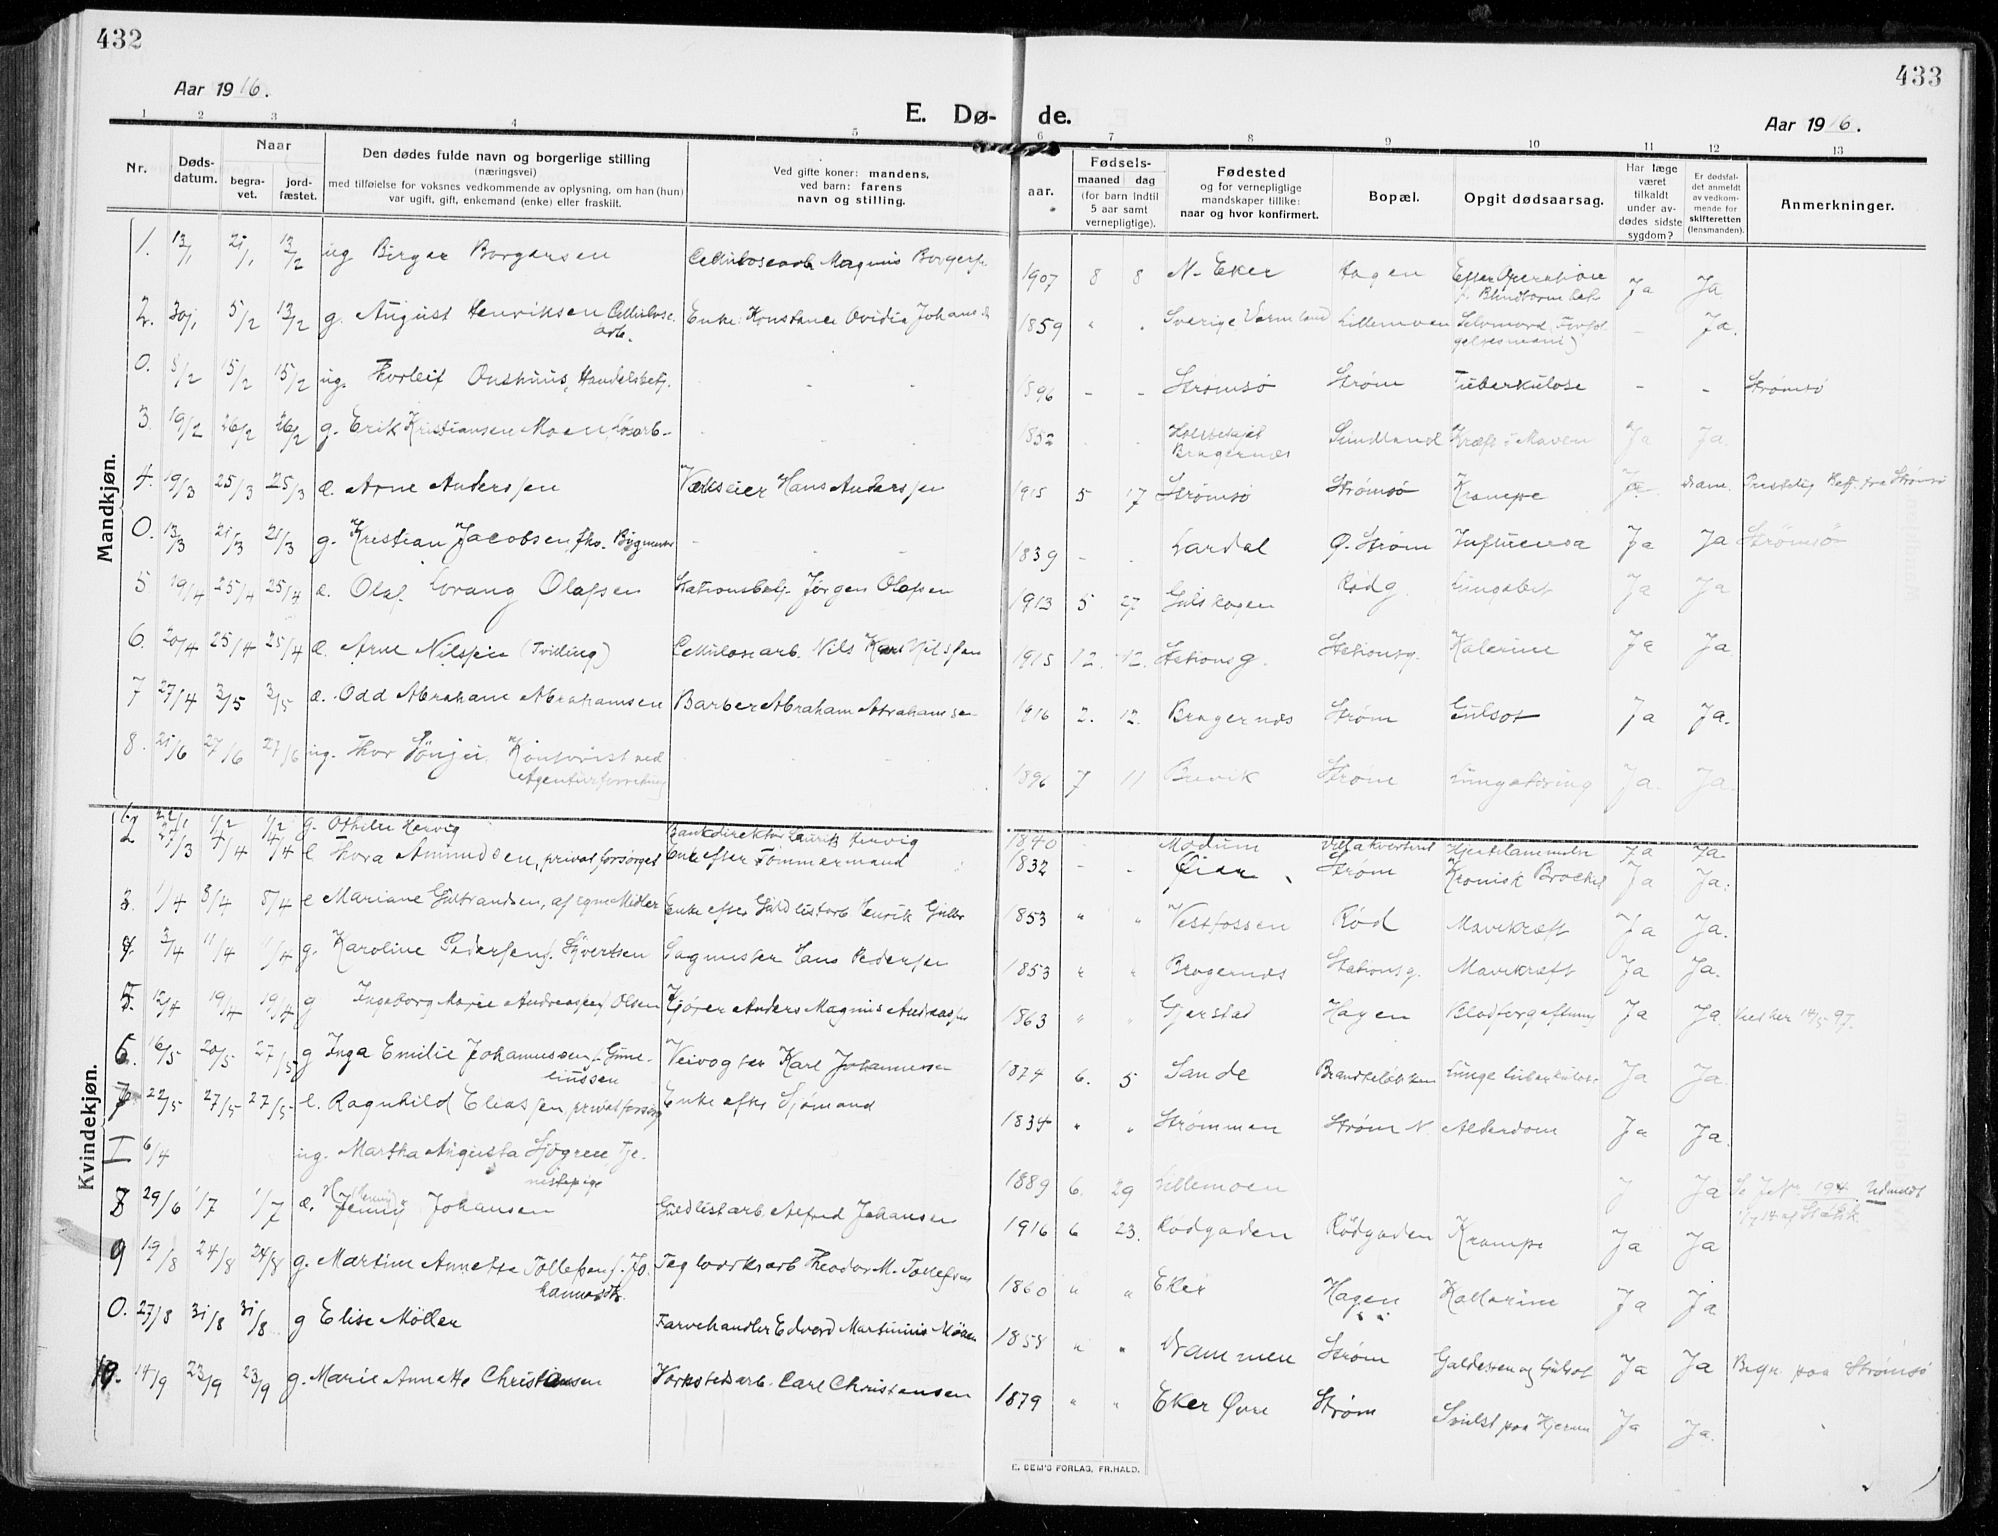 432
433
Aar 1916.
E. Dø- de.
Aar 1916.
1 2 3 4 5 6 7 8 9 10 11 12 13
Nr.
Døds-
datum.
Naar
begra-
vet.
jord-
fæstet.
Den dødes fulde navn og borgerlige stilling
(næringsvei)
med tilføielse for voksnes vedkommende av oplysning, om han (hun)
var ugift, gift, enkemand (enke) eller fraskilt.
Ved gifte koner: mandens,
ved barn: farens
navn og stilling.
aar.
Fødsels-
maaned dag
(for barn indtil
5 aar samt
vernepligtige).
Fødested
og for vernepligtige
mandskaper tillike:
naar og hvor konfirmert.
Bopæl.
Opgit dødsaarsag.
Har læge
været
tilkaldt
under av-
dødes sidste
sygdom?
Er dødsfal-
det anmeldt
av vedkom-
mende for
skifteretten
(lensmanden).
Anmerkninger.
Mandkjøn.
1. 13/1 21/1 13/2 ug Birger Borgersen Cellulosearb. Magnus Borgers. 1907 8 8 N. Eker Hagen Efter Operation
f. Blindtarmbet. Ja Ja
2. 30/1 5/2 13/2 g. August Henriksen Cellulose
arb. Enke: Konstance Ovidia Johans. 1859 " " Sverige Vermland Lillemoen Selvmord (Forføl
gelsesmani) - Ja.
0. 8/2 15/2 15/2 ug. Thorleif Onshuus, Handelsbetj. - - - 1896 - - Strømsø Strøm Tuberkulose - - Strømsø
3 19/2 26/2 26/2 g. Erik Kristiansen Moen, Løsarb. - - - 1852 - - Bragernes Sundland Kræft i Maven Ja Ja.
4. 19/3 25/3 25/3 æ. Arne Anderssen Verkseier Hans Anderssen 1915 5 17 Strømsø Strømsø Krampe Ja Dram. Strømsø
0. 13/3 21/3 21/3 g. Kristian Jacobsen fhv. Bygmester - - - 1839 - - Lardal Ø. Strøm Influensa Ja Ja Strømsø
5 19/4 25/4 25/4 æ. Olaf Wrang Olafsen Stationsbetj. Jørgen Olafsen 1913 5 27 Gulskogen Rødg. Lungebet Ja Ja
6. 20/4 25/4 25/4 æ. Arne Nilssen (Tvilling) Cellulosearb. Nils Karl Nilssen 1915 12. 12. Stationsg. Stationsg. Katerine Ja Ja.
7 27/4 3/5 3/5 æ. Odd Abraham Abrahamsen Barber Abraham Abrahamsen 1916 2. 12. Bragernes Strøm Gulsot Ja Ja.
8. 21/6 27/6 27/6 ug. Thor Kontorist ved
Agenturforretning - - - 1896 7 11 Brevik Strøm Lungetæring Ja. Ja.
Kvindekjøn.
1. 22/1 1/2 1/2 g. Othilie Hervig Bankdirektør Laurits Hervig 1840 - Modum Hjertelammelse Ja Ja.
2 27/3 4/4 4/4 e Thora Amundsen, privat forsørget Enke efter Tømmermand 1832 - " Øier Strøm Kronisk Bronkit Ja Ja.
3. 1/4 8/4 8/4 e Mariane Gulbrandsen, af egne Midler Enke efter Guldlistarb. Henrik Gulbr 1853 " " Vestfossen Rød Mavekræft Ja Ja.
4. 3/4 11/4 11/4 g. Karoline Pedersen f. Syvertsen Sagmester Hans Pedersen 1853 " " Bragernes Stationsg. Mavekræft Ja Ja.
5. 12/4 19/4 19/4 g Ingeborg Marie Andreassen f. Olsen Kjører Anders Magnus Andreassen 1863 " " Gjerstad Hagen Blodforgiftning Ja Ja 14/5 97.
6. 16/5 20/5 27/5 g Inga Emilie Johannessen f. Gune-
liussen Veivogter Karl Johannessen 1874 6. 5 Sande Brandteløkken Lungetuberkulose Ja Ja
7 22/5 27/5 27/5 e. Ragnhild Eliassen privat forsørg Enke efter Sjømand 1834 " " Strømmen Strøm N. Alderdom Ja Ja.
I 6/4 ug. Martha Augusta Sjøgren Tje-
nestepige 1889 6. 29 Lillemoen J Ja Se J. Nr. 194. Udmeldt
8 29/6 1/7 1/7 æ. Jenny (Henny) Johansen Guldlistarb. Alfred Johansen 1916 6 23. Rødgaden Rødgaden Krampe Ja Ja
9 19/8 24/8 24/8 g. Martine Annette Tollefsen f. Jo-
hannesdtr. Teglverksarb Theodor M. Tollefsen 1860 " " Eker Hagen Kattarine Ja Ja
0. 27/8 31/8 31/8 g Elise Møller Farvehandler Edvard Martinius Møller 1858 " " Drammen Strøm Galdesten og Gulsot Ja Ja Begr. paa Strømsø
10. 14/9 23/9 23/9 g. Marie Annette Christiansen Verkstedsarb. Carl Christensen 1879 " " Eker Øvre Strøm Svulst paa Hjernen Ja Ja.
E. SEM'S FORLAG, FR.HALD.